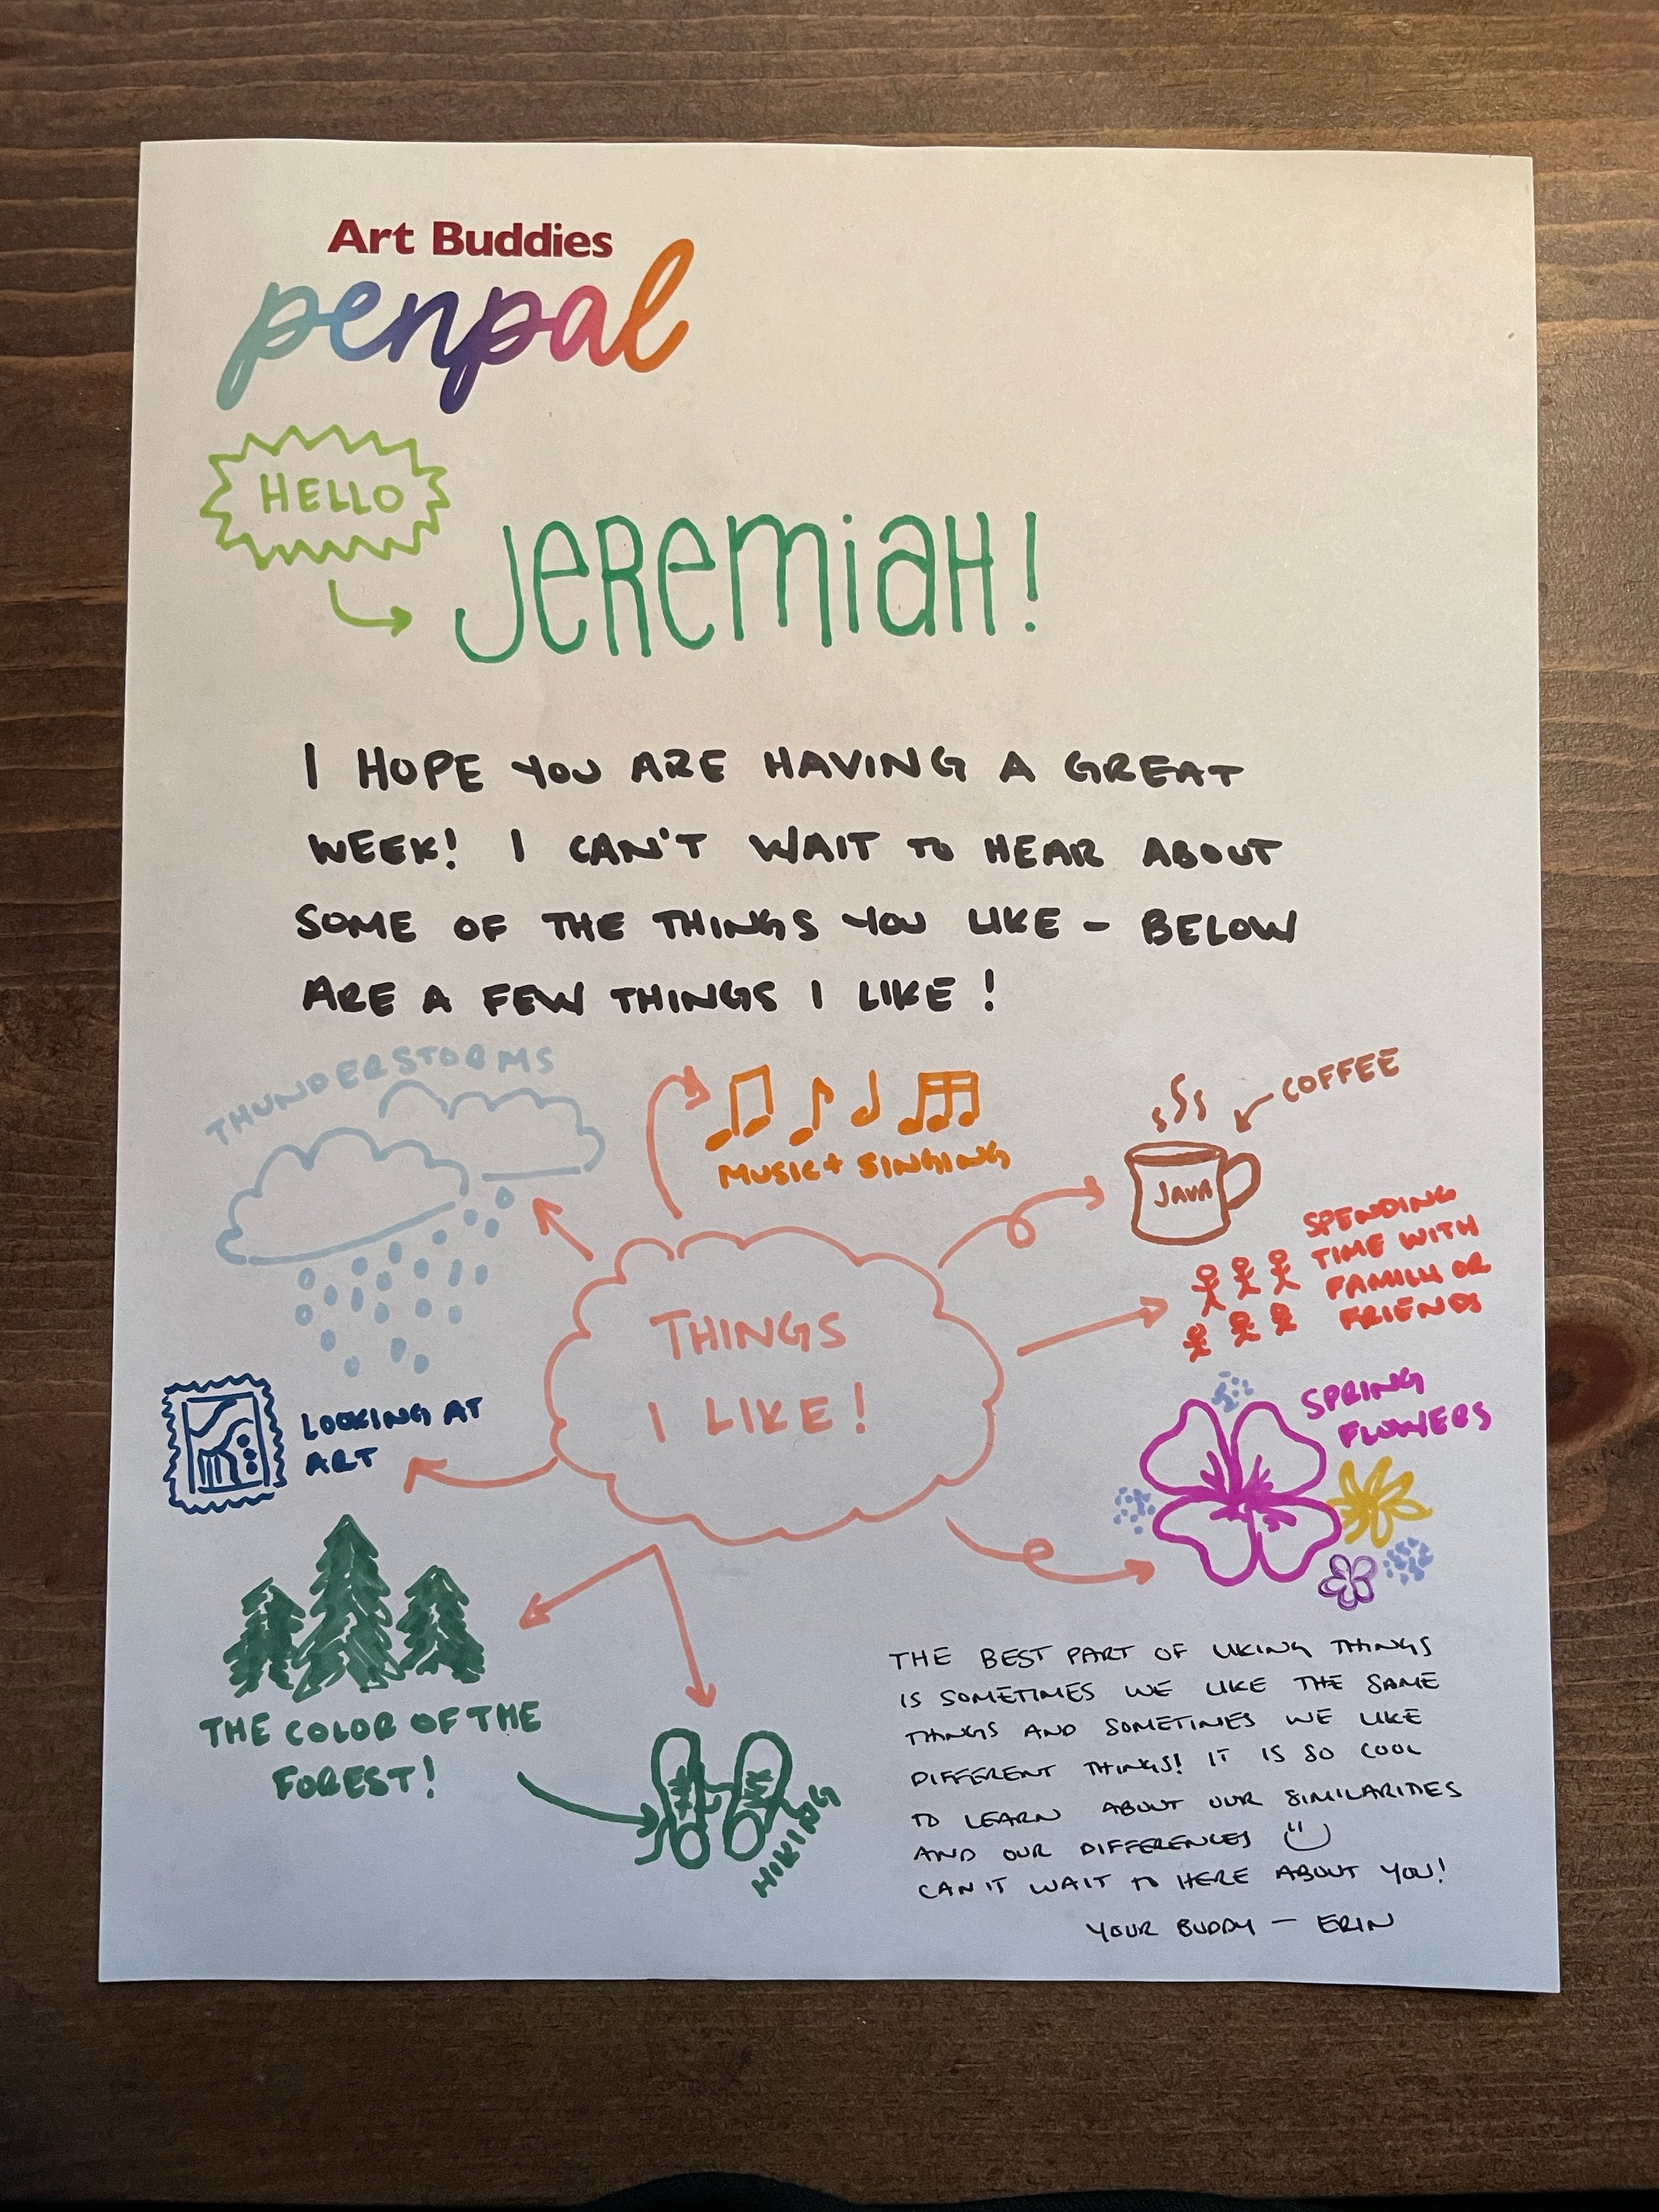 Art Buddies
penpal
HELLO
JeReMiaH!
I HOPE YOU ARE HAVING A GREAT
WEEK! I CAN'T WAIT TO HEAR ABOUT
SOME OF THE THINGS YOU LIKE - BELOW
ARE A FEW THINGS I LIKE!
THUNDERSTORMS
MUSIC + SINGING
COFFEE
JAVA
SPENDING
TIME WITH
FAMILY OR
FRIENDS
THINGS
I LIKE!
LOOKING AT
ART
SPRING
FLOWERS
THE COLOR OF THE
FOREST!
HIKING
THE BEST PART OF LIKING THINGS
IS SOMETIMES WE LIKE THE SAME
THINGS AND SOMETIMES WE LIKE
DIFFERENT THINGS! IT IS SO COOL
TO LEARN ABOUT OUR SIMILARITIES
AND OUR DIFFERENCES
CAN'T WAIT TO HERE ABOUT YOU!
YOUR BUDDY - ERIN